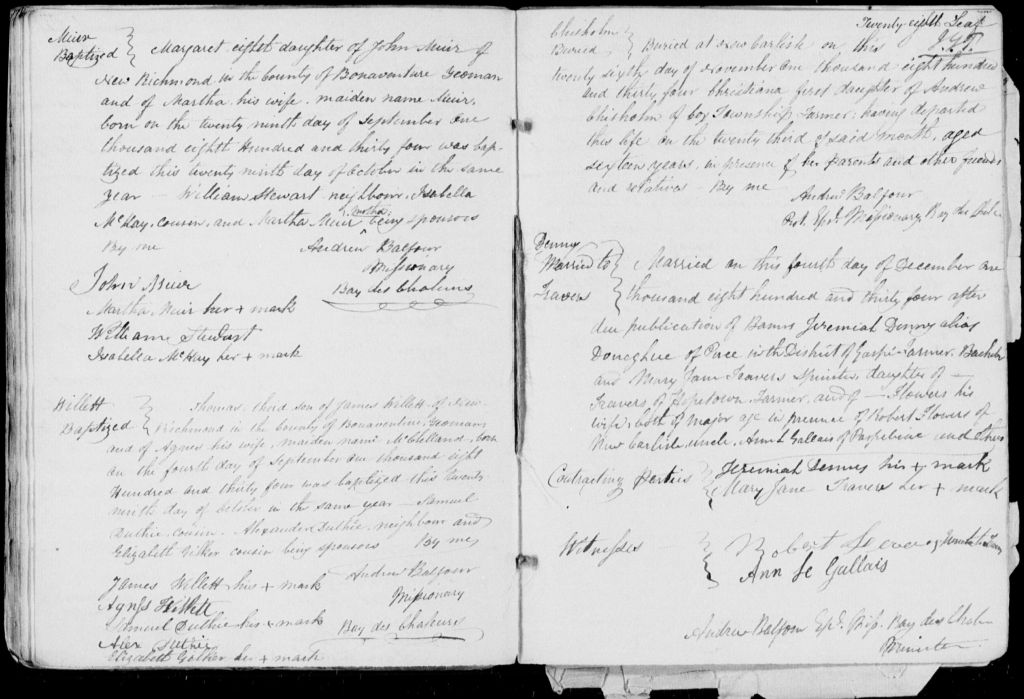 Muir
Baptized } Margaret eight daughter of John Muir of
New Richmond in the County of Bonaventure Yeoman
and of Martha his wife, maiden name Muir,
born on the twenty ninth day of September One
thousand eighth Hundred and thirty four was bap-
tized this twenty ninth day of October in the same
year — William Stewart neighbour, Isabella
McKay, cousin, and Martha Muir, being sponsors
By me Andrew Balfour
Missionary
John Muir Bay des Chaleurs
Martha Muir her + mark
William Stewart
Isabella McKay her + mark
Willett
Baptized } Thomas, third son of James Willett of New
Richmond in the County of Bonaventure, Yeoman
and of Agnes his wife, maiden name McClelland, born
on the fourth day of September one thousand eight
Hundred and thirty four was baptized this twenty
ninth day of October in the same year — Samuel
Duthie, cousin, Alexander Duthie, neighbour and
Elizabeth cousin being sponsors By me
James Willett his + mark Andrew Balfour
Agness Willett Missionary
Samuel Duthie his + mark Bay des Chaleurs
Alex Duthie
Elizabeth her + mark
Twenty-eight Leaf
J.G.T.
Chisholm
Buried } Buried at New Carlisle on this
twenty sixth day of November one thousand eight hundred
and thirty four Christiana first daughter of Andrew
Chisholm of Cox Township, Farmer, having departed
this life on the twenty third of said month, aged
sixteen years, in presence of her parents and other friends
and relatives — By me
Andrew Balfour
Prot. Epl. Missionary Bay des Chale
Denny
Married to } Married on this fourth day of December one
Travers thousand eight hundred and thirty four after
due publication of Banns Jeremiah Denny alias
Donoghue of Percé in the District of Gaspé Farmer, Bachelor
and Mary Jane Travers Spinster, daughter of —
Travers of Hopetown Farmer, and of — Flowers his
wife, both of major age in presence of Robert Flowers of
New Carlisle, uncle, Ann Le Gallais of Paspebiac and others
Contracting Parties } Jeremiah Denny his + mark
Mary Jane Travers her + mark
Witnesses — } Robert
Ann Le Gallais
Andrew Balfour Epl. Miss. Bay des Chaleu
Minister